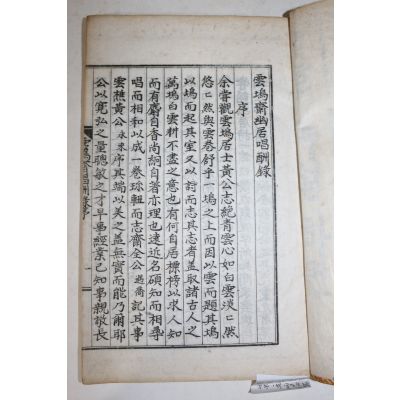 雲塢齋幽居唱酬錄
序
余嘗觀雲塢居士黃公志絶青雲心如白雲淡〻然
悠〻然與雲卷舒乎一塢之上而因以雲而題其塢
以塢而起其室又以詩而志其志者盖取諸古人之
萬塢白雲耕不盡之意也有何自居標榜以求人知
而有麝自香尚絅自著亦理也遠近名碩知而相尋
唱而相和以成一卷琭軸而志齋全公 記其事
雲樵黃公 序其端以美之盖無實而能乃爾耶
公以寬弘之量聰敏之才早事經業已知事親敬長